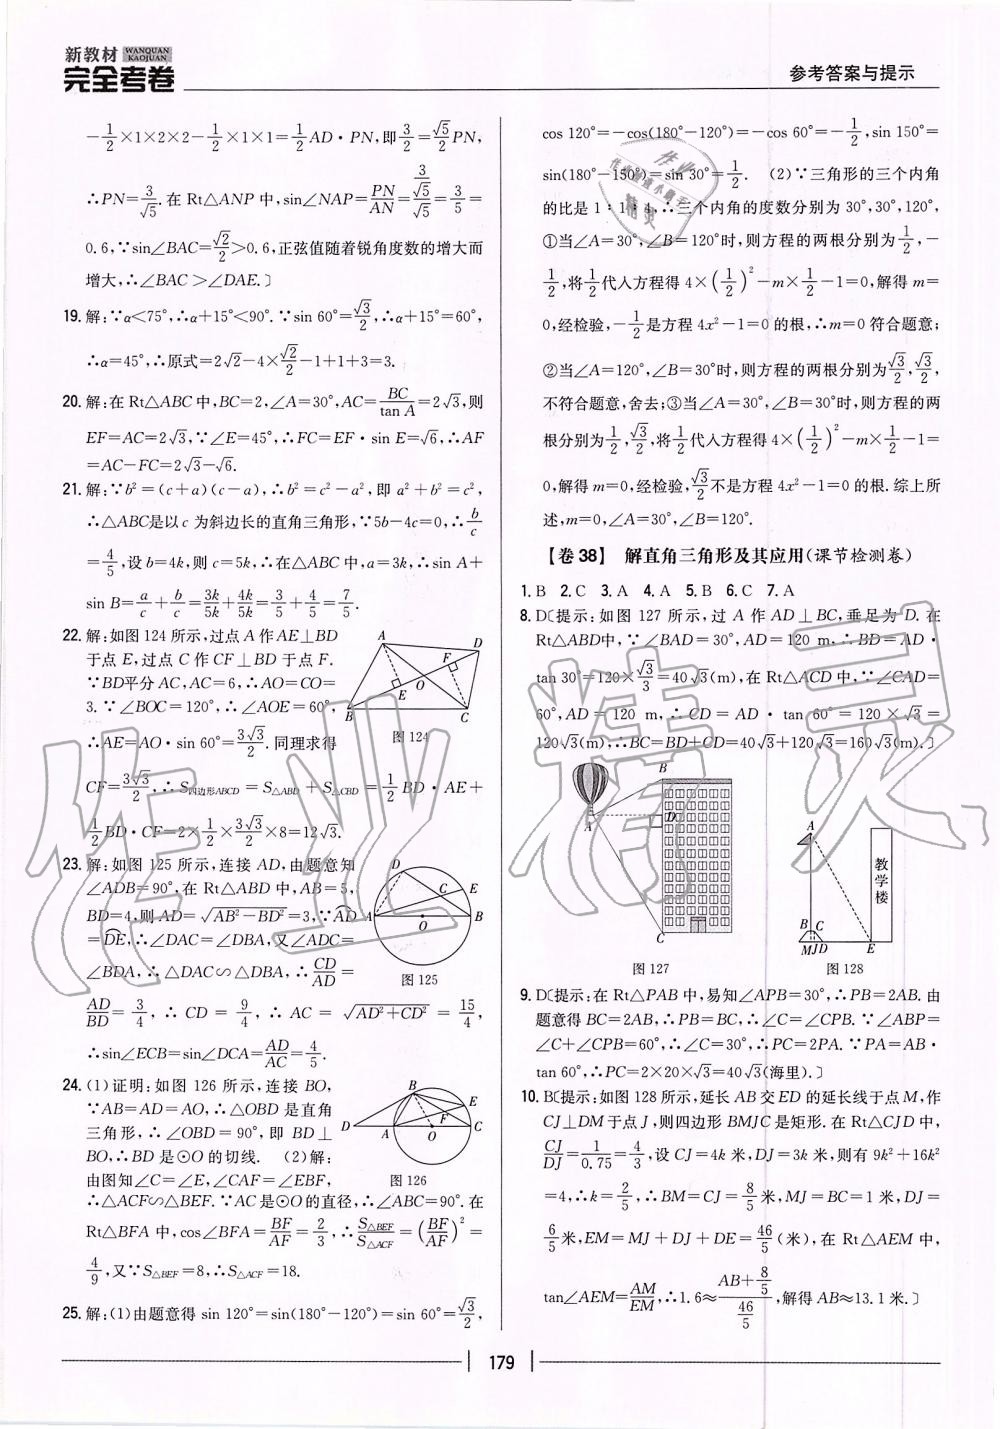 新教材 WANQUAN KAOJUAN
完全考卷
参考答案与提示
-1/2×1×2×2-1/2×1×1=1/2AD·PN,即3/2=√5/2PN,
∴PN=3/√5.在 Rt△ANP 中,sin∠NAP=PN/AN=(3/√5)/√5=3/5=
0.6,∵sin∠BAC=√2/2>0.6,正弦值随着锐角度数的增大而
增大,∴∠BAC>∠DAE.〕
19.解:∵α<75°,∴α+15°<90°.∵sin 60°=√3/2,∴α+15°=60°,
∴α=45°,∴原式=2√2-4×√2/2-1+1+3=3.
20.解:在 Rt△ABC 中,BC=2,∠A=30°,AC=BC/tan A=2√3,则
EF=AC=2√3,∵∠E=45°,∴FC=EF·sin E=√6,∴AF
=AC-FC=2√3-√6.
21.解:∵b²=(c+a)(c-a),∴b²=c²-a²,即 a²+b²=c²,
∴△ABC是以 c 为斜边长的直角三角形,∵5b-4c=0,∴b/c
=4/5,设 b=4k,则 c=5k,∴在△ABC中,a=3k,∴sin A+
sin B=a/c+b/c=3k/5k+4k/5k=3/5+4/5=7/5.
22.解:如图 124 所示,过点 A 作 AE⊥BD
于点 E,过点 C 作 CF⊥BD 于点 F.
∵BD平分 AC,AC=6,∴AO=CO=
3.∵∠BOC=120°,∴∠AOE=60°,
∴AE=AO·sin 60°=3√3/2.同理求得
CF=3√3/2,∴S四边形ABCD=S△ABD+S△CBD=1/2BD·AE+
1/2BD·CF=2×1/2×3√3/2×8=12√3.
A D F E O B C
图 124
23.解:如图 125 所示,连接 AD,由题意知
∠ADB=90°,在 Rt△ABD 中,AB=5,
BD=4,则 AD=√(AB²-BD²)=3,∵AD
=DE,∴∠DAC=∠DBA,又∠ADC=
∠BDA,∴△DAC∽△DBA,∴CD/AD=
AD/BD=3/4,∴CD=9/4,∴AC=√(AD²+CD²)=15/4,
∴sin∠ECB=sin∠DCA=AD/AC=4/5.
D E C A O B
图 125
24.(1)证明:如图 126 所示,连接 BO,
∵AB=AD=AO,∴△OBD 是直角
三角形,∴∠OBD=90°,即 BD⊥
BO,∴BD 是⊙O 的切线. (2)解:
由图知∠C=∠E,∠CAF=∠EBF,
∴△ACF∽△BEF.∵AC是⊙O 的直径,∴∠ABC=90°.在
Rt△BFA 中,cos∠BFA=BF/AF=2/3,∴S△BEF/S△ACF=(BF/AF)²=
4/9,又∵S△BEF=8,∴S△ACF=18.
B E F D A O C
图 126
25.解:(1)由题意得 sin 120°=sin(180°-120°)=sin 60°=√3/2,
cos 120°=-cos(180°-120°)=-cos 60°=-1/2,sin 150°=
sin(180°-150°)=sin 30°=1/2. (2)∵三角形的三个内角
的比是 1∶1∶4,∴三个内角的度数分别为 30°,30°,120°,
①当∠A=30°,∠B=120°时,则方程的两根分别为1/2,-
1/2,将1/2代入方程得 4×(1/2)²-m×1/2-1=0,解得 m=
0,经检验,-1/2是方程 4x²-1=0 的根,∴m=0 符合题意;
②当∠A=120°,∠B=30°时,则方程的两根分别为√3/2,√3/2,
不符合题意,舍去;③当∠A=30°,∠B=30°时,则方程的两
根分别为1/2,√3/2,将1/2代入方程得 4×(1/2)²-m×1/2-1=
0,解得 m=0,经检验,√3/2不是方程 4x²-1=0 的根.综上所
述,m=0,∠A=30°,∠B=120°.
【卷 38】 解直角三角形及其应用(课节检测卷)
1. B 2. C 3. A 4. A 5. B 6. C 7. A
8. D〔提示:如图 127 所示,过 A 作 AD⊥BC,垂足为 D.在
Rt△ABD中,∵∠BAD=30°,AD=120 m,∴BD=AD·
tan 30°=120×√3/3=40√3(m),在 Rt△ACD 中,∵∠CAD=
60°,AD=120 m,∴CD=AD·tan 60°=120×√3=
120√3(m),∴BC=BD+CD=40√3+120√3=160√3(m).〕
B A D C
图 127
A 教学楼 B C MJD E
图 128
9. D〔提示:在 Rt△PAB 中,易知∠APB=30°,∴PB=2AB.由
题意得 BC=2AB,∴PB=BC,∴∠C=∠CPB.∵∠ABP=
∠C+∠CPB=60°,∴∠C=30°,∴PC=2PA.∵PA=AB·
tan 60°,∴PC=2×20×√3=40√3(海里).〕
10. B〔提示:如图 128 所示,延长 AB 交 ED 的延长线于点 M,作
CJ⊥DM 于点 J,则四边形 BMJC 是矩形.在 Rt△CJD 中,
CJ/DJ=1/0.75=4/3,设 CJ=4k 米,DJ=3k 米,则有 9k²+16k²
=4,∴k=2/5,∴BM=CJ=8/5米,MJ=BC=1 米,DJ=
6/5米,EM=MJ+DJ+DE=46/5(米),在 Rt△AEM 中,
tan∠AEM=AM/EM,∴1.6≈(AB+8/5)/(46/5),解得 AB≈13.1 米.〕
179
作业精灵